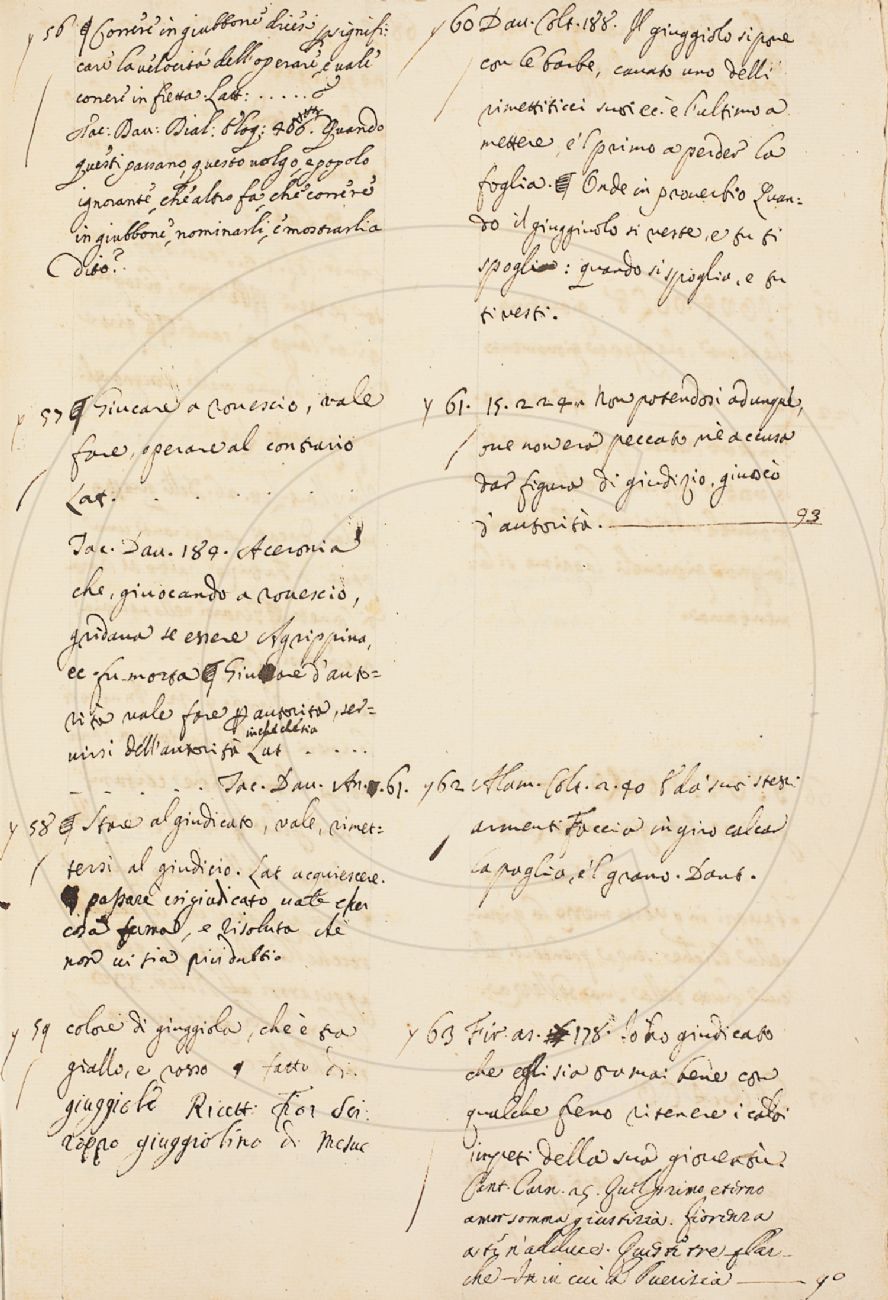 y 56 ¶ Correre in giubbone dicesi p signifi:
care la velocità dell'operare, e vale
correre in fretta Latt: . . . . . .
Tac: Dav: Dial: Eloq: 406. Quando
questi passano, questo volgo, e popolo
ignorante, ch'e altro fa, che correre
in giubbone, nominarli, e mostrarli a
Dito?
y 57 ¶ Giucare a rovescio, vale
fare, operare al contrario
Lat. . . . . . .
Tac. Dav. 184. Aceronia
che, giuocando a rovescio,
gridava se essere Agrippina,
ec fu morta ¶ Giucare d'auto=
rità vale fare p autorità, ser=
virsi dell'autorità Lat . . . .
. . . . . Tac. Dav. An. . 61.
y 58 ¶ Stare al giudicato, vale, rimet=
tersi al giudicio. Lat acquiescere.
¶ passare in giudicato vale esser
cosa ferma, e risoluta che
non vi sia più dubbio
y 59 colore di giuggiola, che è tra
giallo, e rosso ¶ fatto di
giuggiole Ricett: Fior Sci:
roppo giuggiolino di Mesue
y 60 Dav. Colt. 188. Il giuggiolo si pone
con le barbe, cavato uno delli
rimettiticci suoi ec. è l'ultimo a
mettere, e'l primo a perder la
foglia. ¶ Onde in proverbio Quan=
do il giuggiuolo si veste, e tu ti
spoglia: quando si spoglia, e tu
ti vesti.
y 61. 15. 224. Non potendosi adunque,
ove non era peccato nè accusa
dar figura di giudizio, giuocò
d'autorità. 93
y 62 Alam. Colt. 2. 40 E da' suoi stessi
armenti Faccia in giro calcar
la paglia, e'l grano. Dant.
y 63 Fir. as. 178. Io ho giudicato
che egli sia oramai bene con
qualche freno ritenere i caldi
impeti della sua gioventù.
Cant. Carn. 25. Quel primo eterno
amor somma giustizia. Fiorenza
a ti n'adduce. Questi tre
che in cui la Puerizia 90